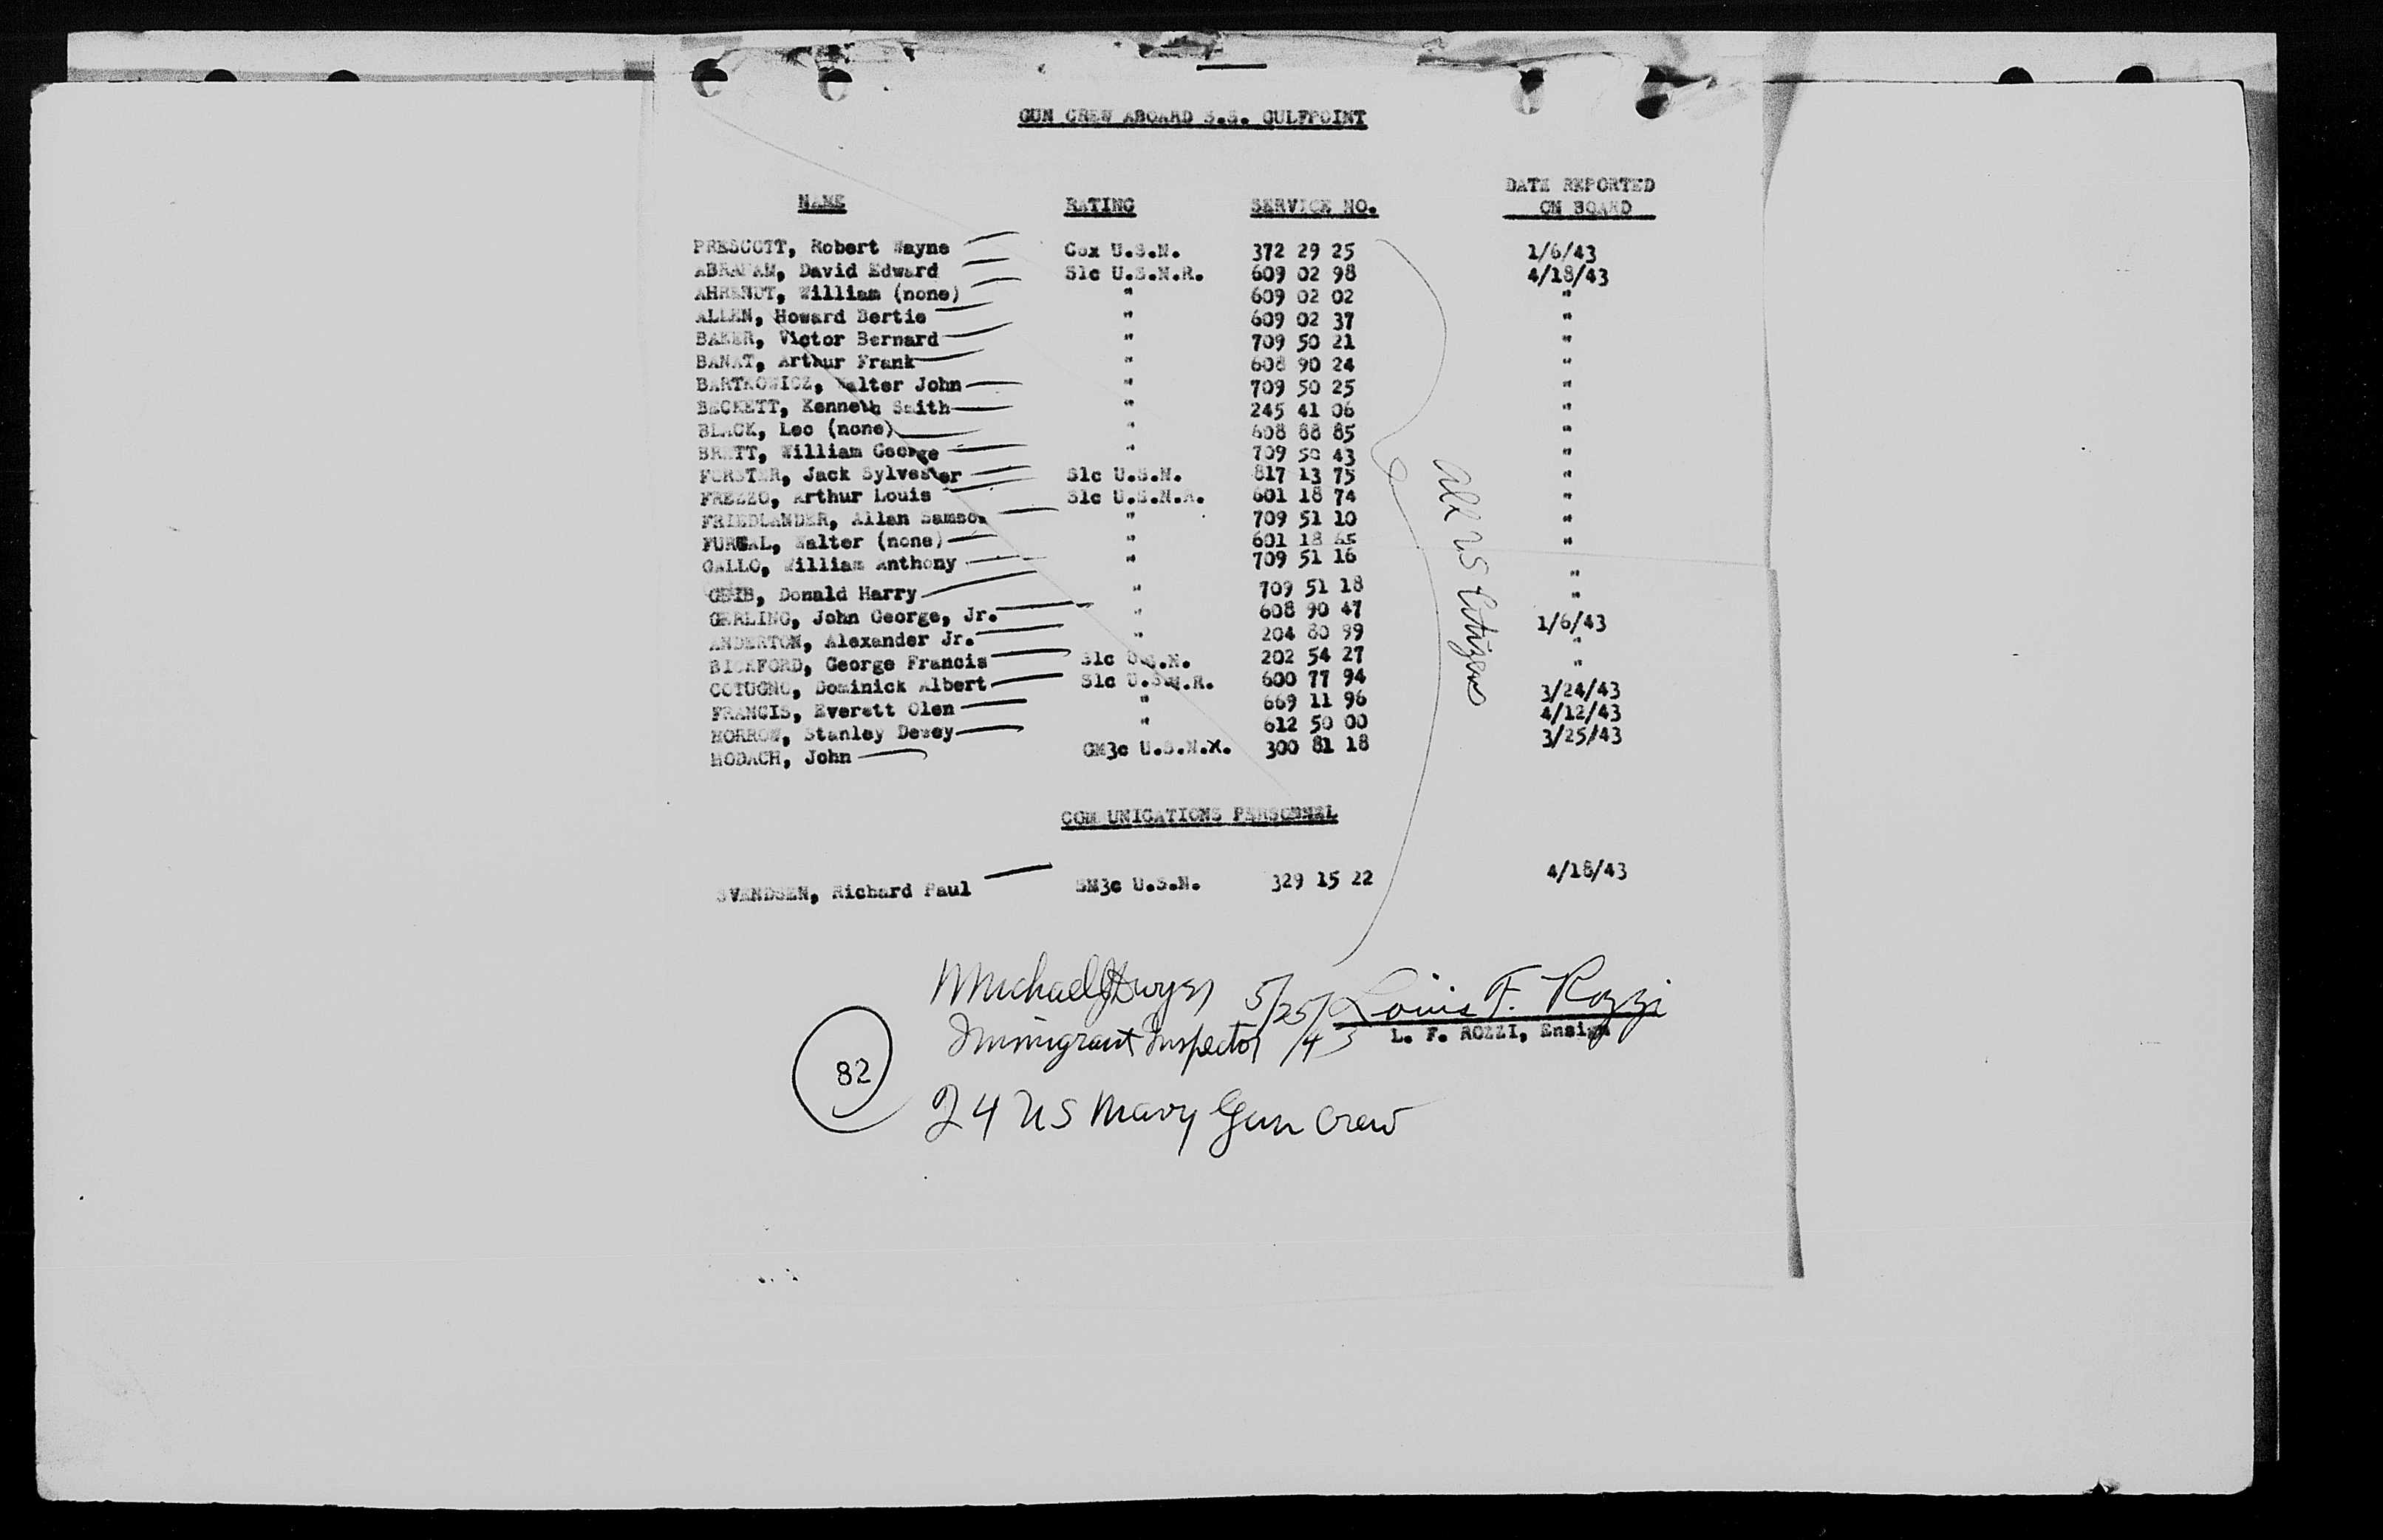 GUN CREW ABOARD S.S. GULFPOINT
NAME RATING SERVICE NO. DATE REPORTED ON BOARD
PRESCOTT, Robert Wayne Cox U.S.N. 372 29 25 1/6/43
ABRAHAM, David Edward S1c U.S.N.R. 609 02 98 4/18/43
AHRENDT, William (none) " 609 02 02 "
ALLEN, Howard Bertie " 609 02 37 "
BAKER, Victor Bernard " 709 50 21 "
BANAT, Arthur Frank " 608 90 24 "
BARTKOWICZ, Walter John " 709 50 25 "
BECKETT, Kenneth Smith " 245 41 06 "
BLACK, Leo (none) " 608 88 85 "
BRETT, William George " 709 50 43 "
FORSTER, Jack Sylvester S1c U.S.N. 817 13 75 "
FREZZO, Arthur Louis S1c U.S.N.R. 601 18 74 "
FRIEDLANDER, Allan Samson " 709 51 10 "
FURGAL, Walter (none) " 601 18 "
GALLO, William Anthony " 709 51 16
GEIB, Donald Harry " 709 51 18 "
GERLING, John George, Jr. " 608 90 47 "
ANDERTON, Alexander Jr. " 204 80 99 1/6/43
BICKFORD, George Francis S1c U.S.N. 202 54 27 "
COTUGNO, Dominick Albert S1c U.S.N.R. 600 77 94 "
FRANCIS, Everett Olen " 669 11 96 3/24/43
MORROW, Stanley Dewey " 612 50 00 4/12/43
HODACH, John GM3c U.S.N.X. 300 81 18 3/25/43
All US Citizens
COMMUNICATIONS PERSONNEL
SVENDSEN, Richard Paul SM3c U.S.N. 329 15 22 4/18/43
Michael J Dwyer 5/25/43
Immigrant Inspector
Louis F. Rozzi
L. F. ROZZI, Ensign
82
24 US Navy Gun Crew